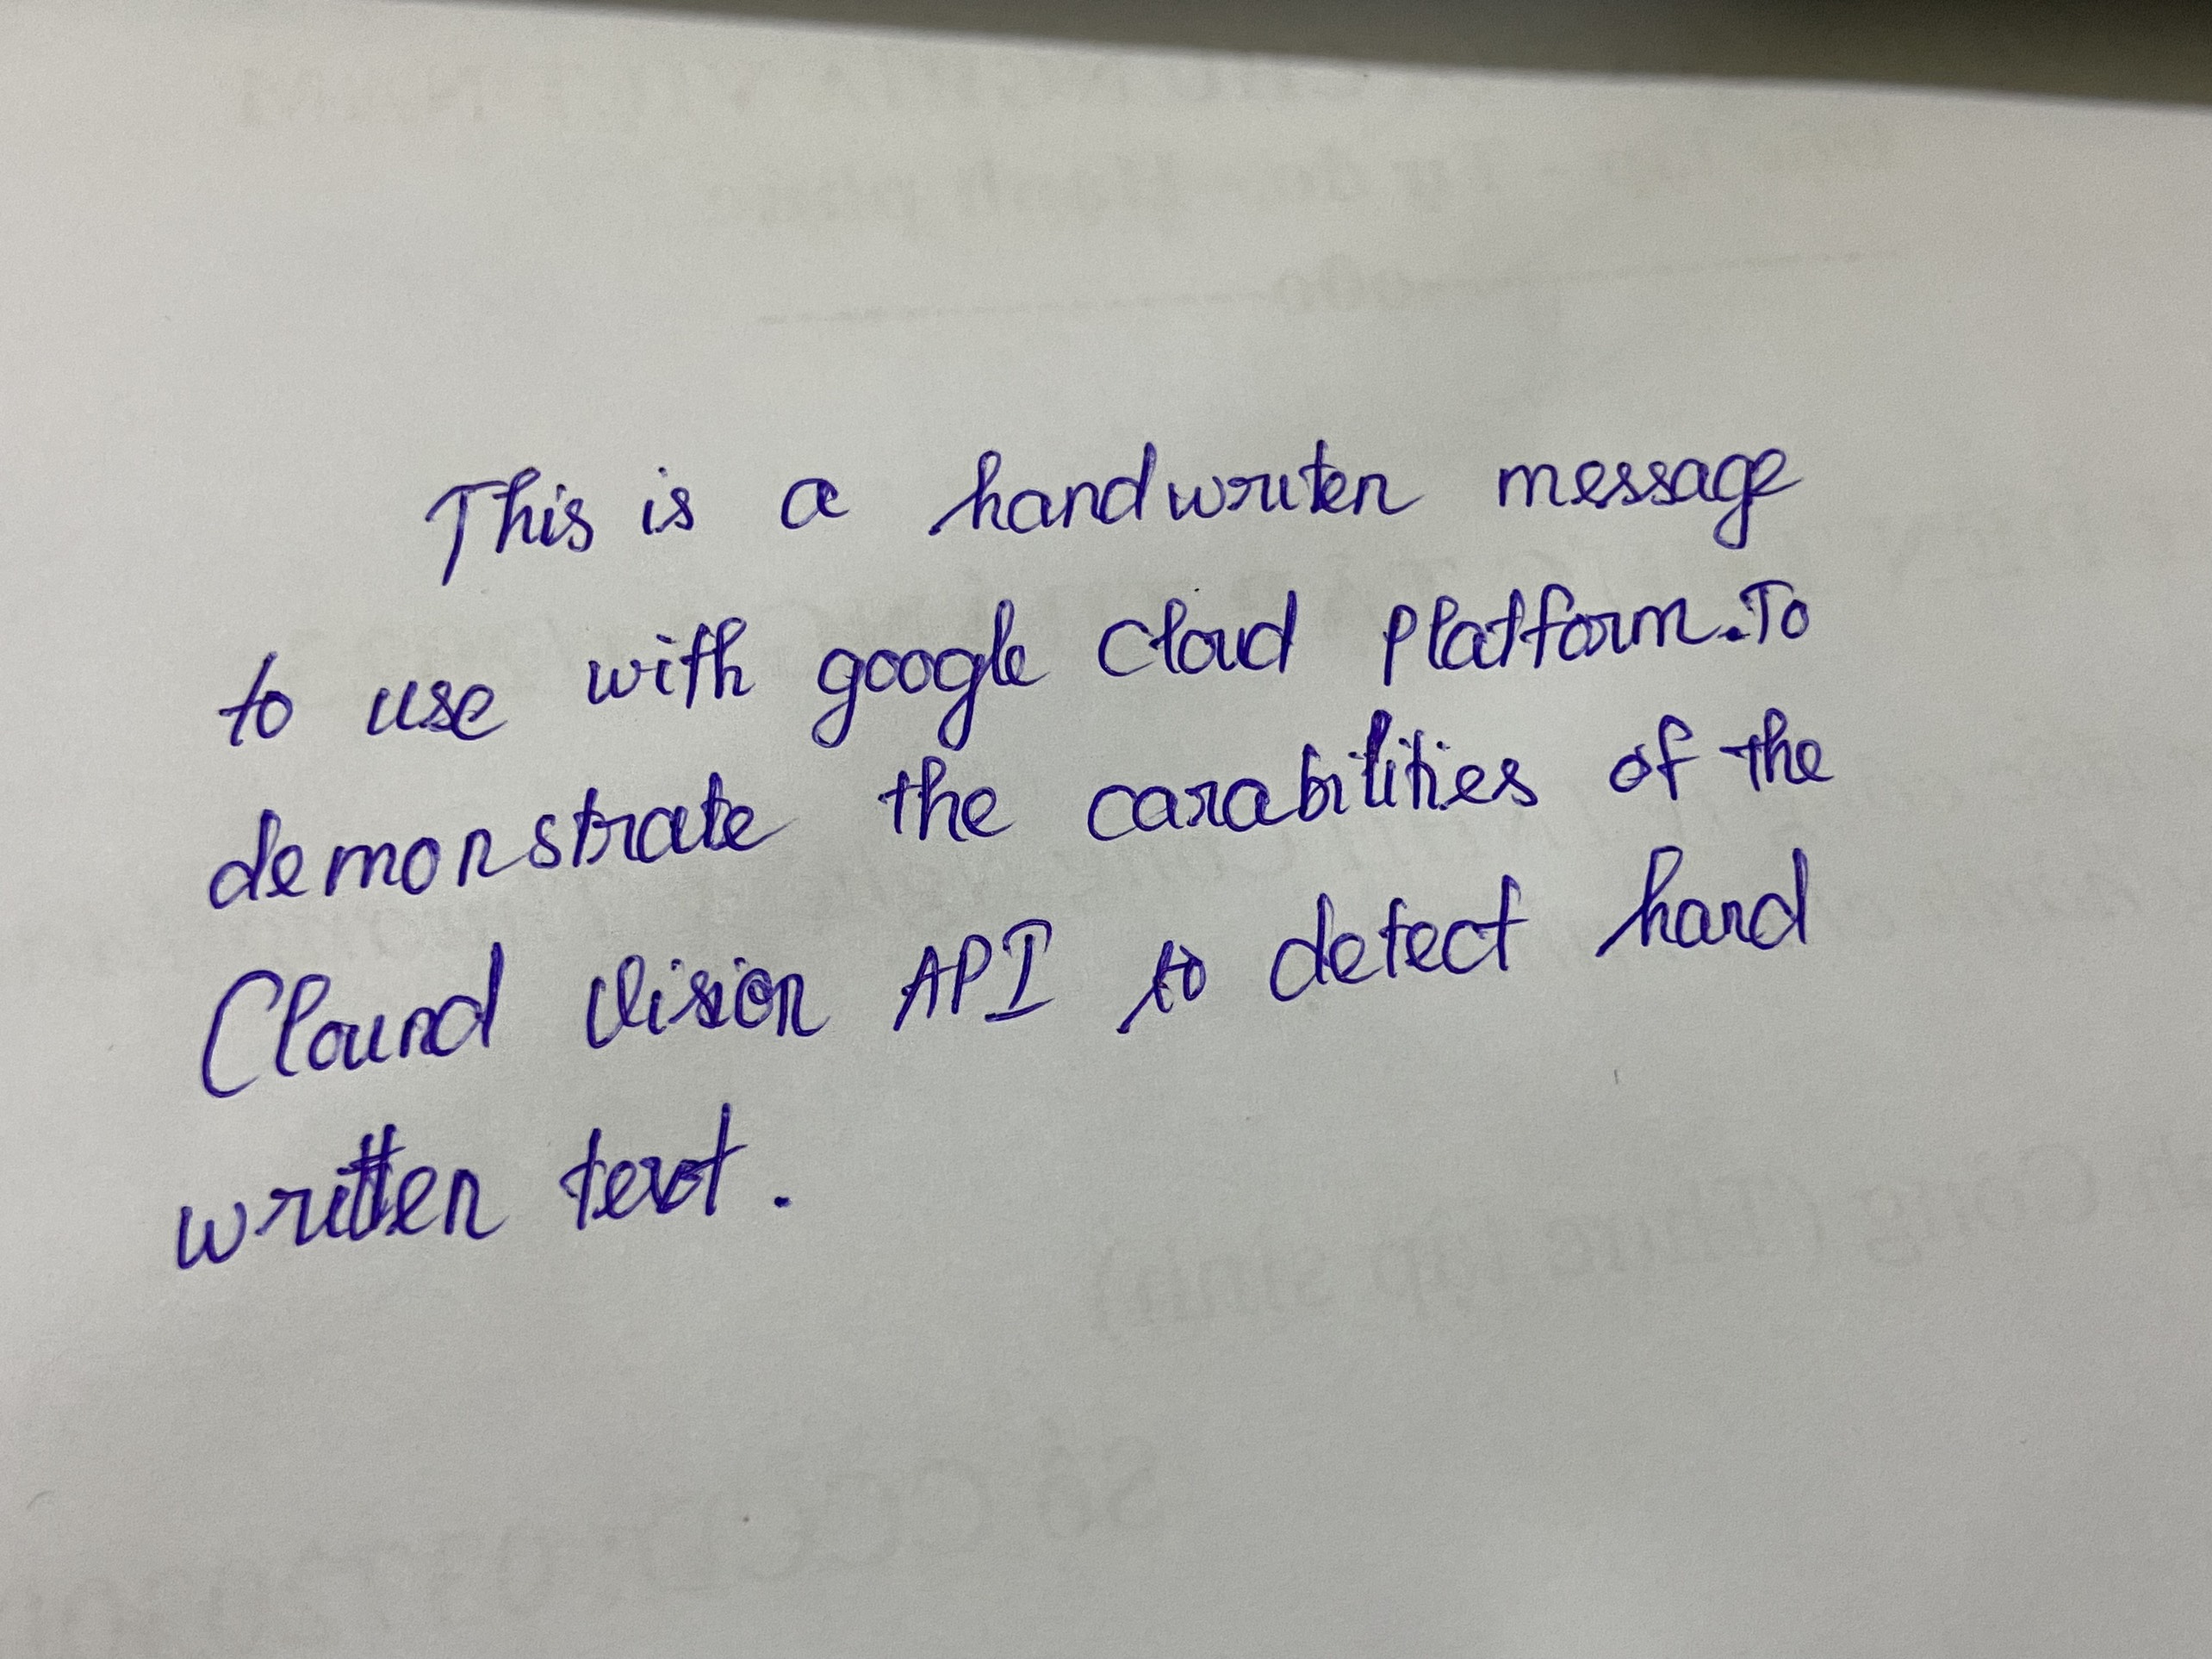 This is a handwriten message
to use with google Cloud Platform. To
demonstrate the carabilities of the
Clound Vision API to detect hand
written text.